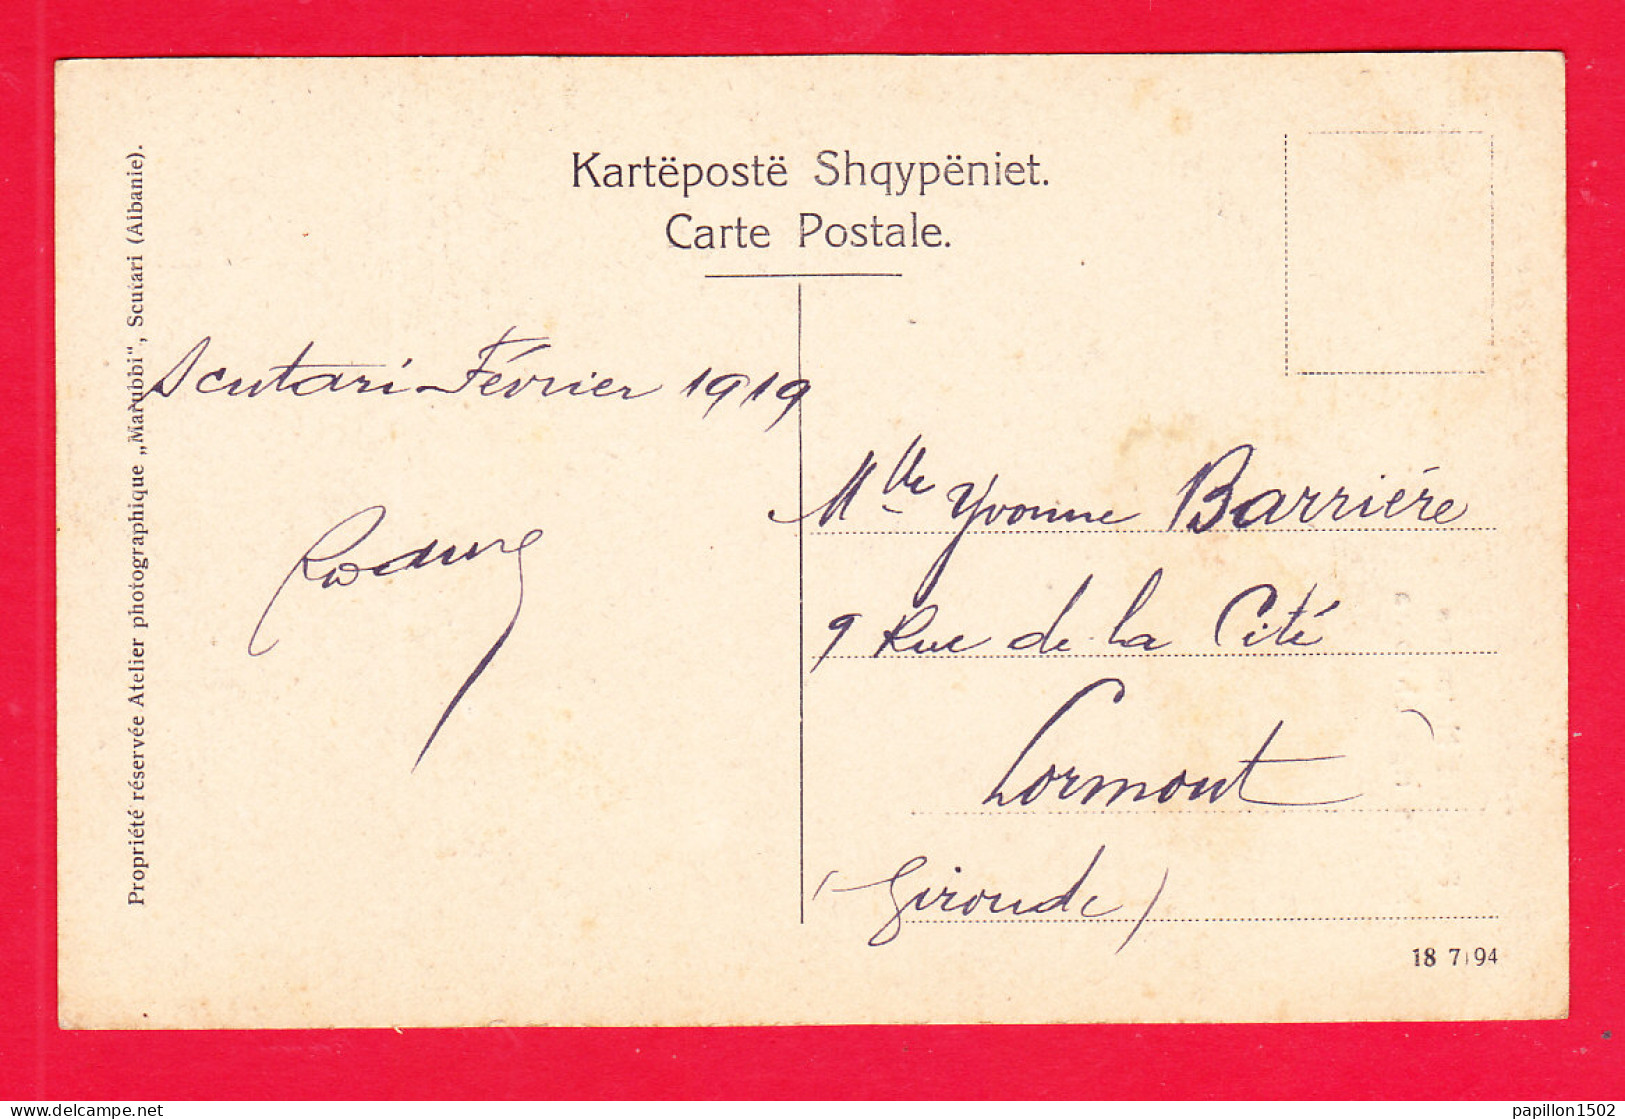 Kartëpostë Shqypëniet.
Carte Postale.
Propriété réservée Atelier photographique „Marubbi“, Scutari (Albanie).
Scutari - Février 1919
Mlle Yvonne Barrière
9 Rue de la Cité
Lormont
(Gironde)
18 7194
delcampe.net
papillon1502